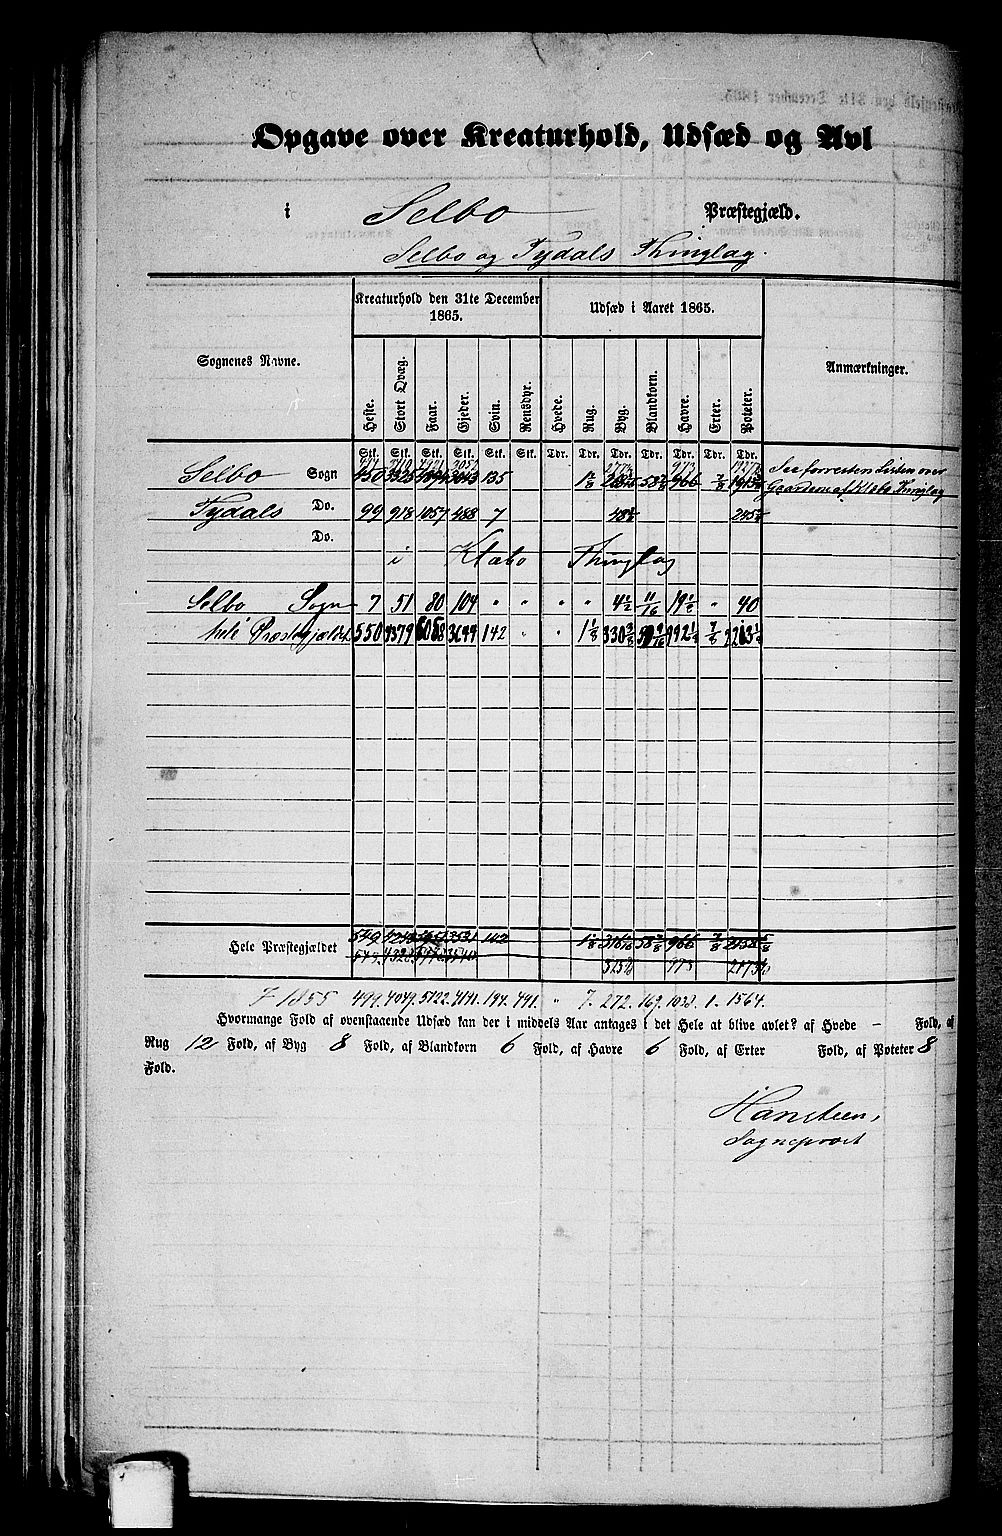 Opgave over Kreaturhold, Udsæd og Avl
i Selbo Præstegjæld.
Selbo og Tydals Thinglag.
Sognenes Navne. Kreaturhold den 31te December 1865. Udsæd i Aaret 1865. Anmærkninger.
Heste. Stort Qvæg. Faar. Gjeder. Svin. Rensdyr. Hvede. Rug. Byg. Blandkorn. Havre. Erter. Poteter.
Stk. Stk. Stk. Stk. Stk. Stk. Tdr. Tdr. Tdr. Tdr. Tdr. Tdr. Tdr.
973
Selbo Sogn 450 3325 3043 135 1 1/8 966 7/8 See forresten Listen over
Gaardene af Klæbo Thinglag
Tydals Do. 99 918 1057 488 7 48 1/2
Do.
i Klæbo Thinglag
Selbo Sogn 7 51 80 104 " " " " 4 1/2 11/16 19 1/2 " 40
hele Præstegjeldet 550 4379 3644 142 " " 1 1/8 992 1/2 7/8
Hele Præstegjældet 549 3531 142 1 1/8 966 7/8
973
7 1855 499. 4049. 5122. 4141. 194. 491. " 7. 272. 169. 1038. 1. 1564.
Hvormange Fold af ovenstaaende Udsæd kan der i middels Aar antages i det Hele at blive avlet? af Hvede – Fold, af
Rug 12 Fold, af Byg 8 Fold, af Blandkorn 6 Fold, af Havre 6 Fold, af Erter Fold, af Poteter 8
Fold.
Hansteen,
Sogneprest